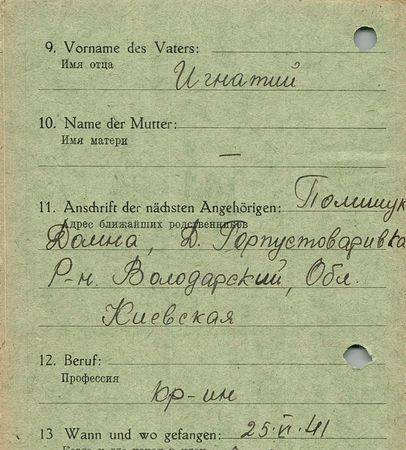 9. Vorname des Vaters:
Имя отца
Игнатий
10. Name der Mutter:
Имя матери
—
11. Anschrift der nächsten Angehörigen: Полищук
Адрес ближайших родственников
Домна, Д. Горпустоваривка
Р-н. Володарский, Обл.
Киевская
12. Beruf:
Профессия
кр-ин
13 Wann und wo gefangen: 25.VI.41